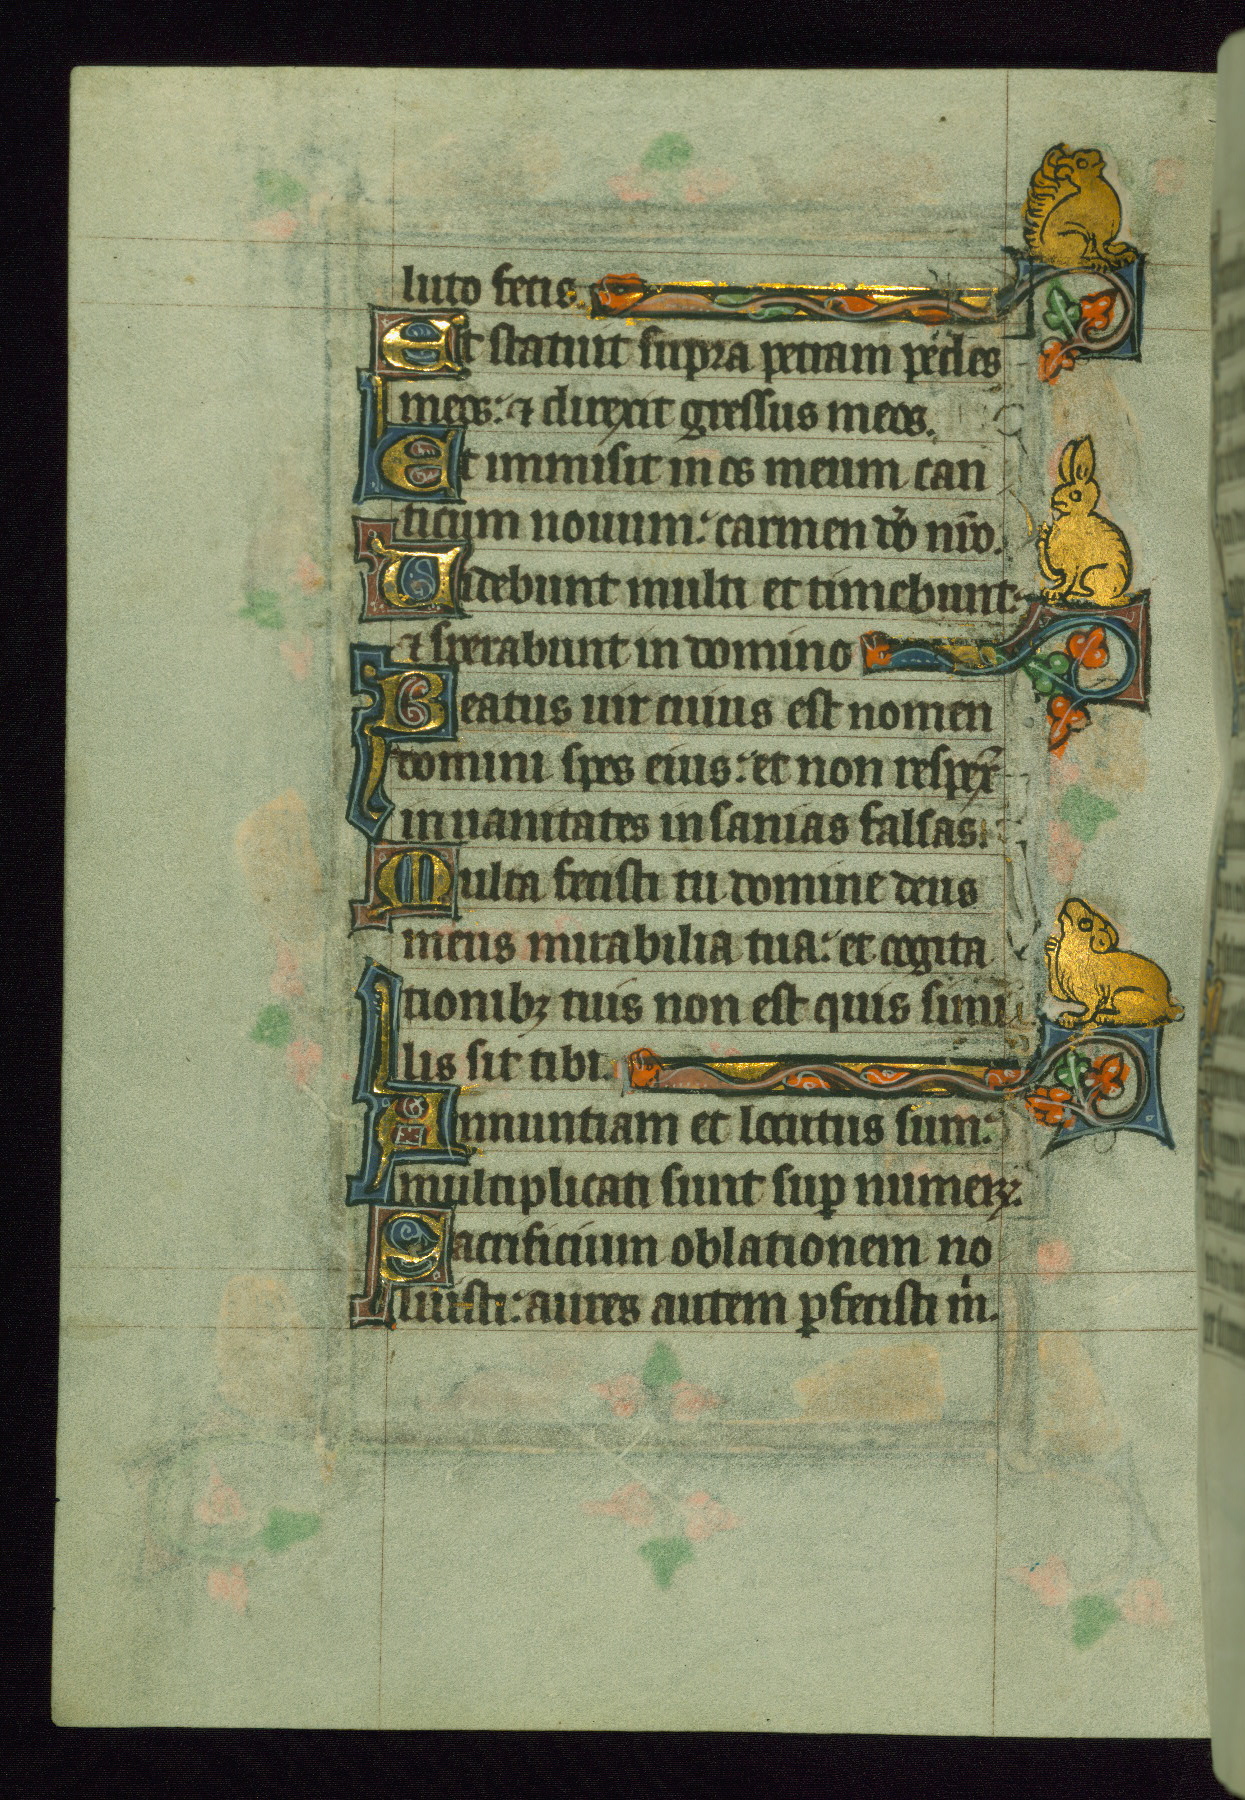 luto fecis.
Et statuit supra petram pedes
meos: ⁊ direxit gressus meos.
Et immisit in os meum can
ticum nouum: carmen dō nr̄o.
Uidebunt multi et timebunt:
⁊ sperabunt in domino
Beatus uir cuius est nomen
domini spes eius: et non respex̄
in uanitates insanias falsas.
Multa fecisti tu domine deus
meus mirabilia tua: et cogita
tionibꝫ tuis non est quis simi
lis sit tibi.
Annuntiam et locutus sum:
multiplicati sunt suꝑ numerꝝ.
Sacrificium oblationem no
luisti: aures autem ꝑfecisti m̄.